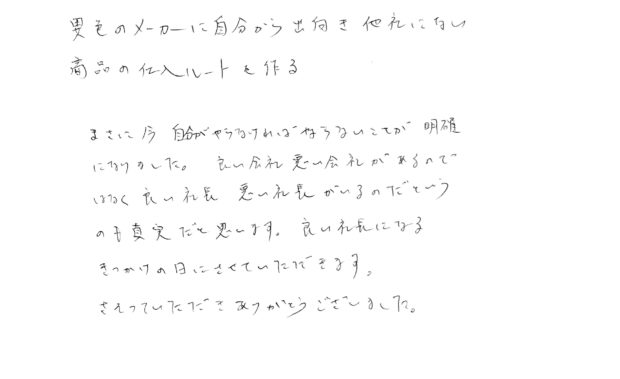 異色のメーカーに自分から出向き他社にない
商品の仕入ルートを作る
まさに今 自分がやらなければならないことが 明確
になりました。 良い会社 悪い会社があるので
はなく 良い社長 悪い社長がいるのだという
のも真実だと思います。 良い社長になる
きっかけの日にさせていただきます。
さそっていただき ありがとうございました。